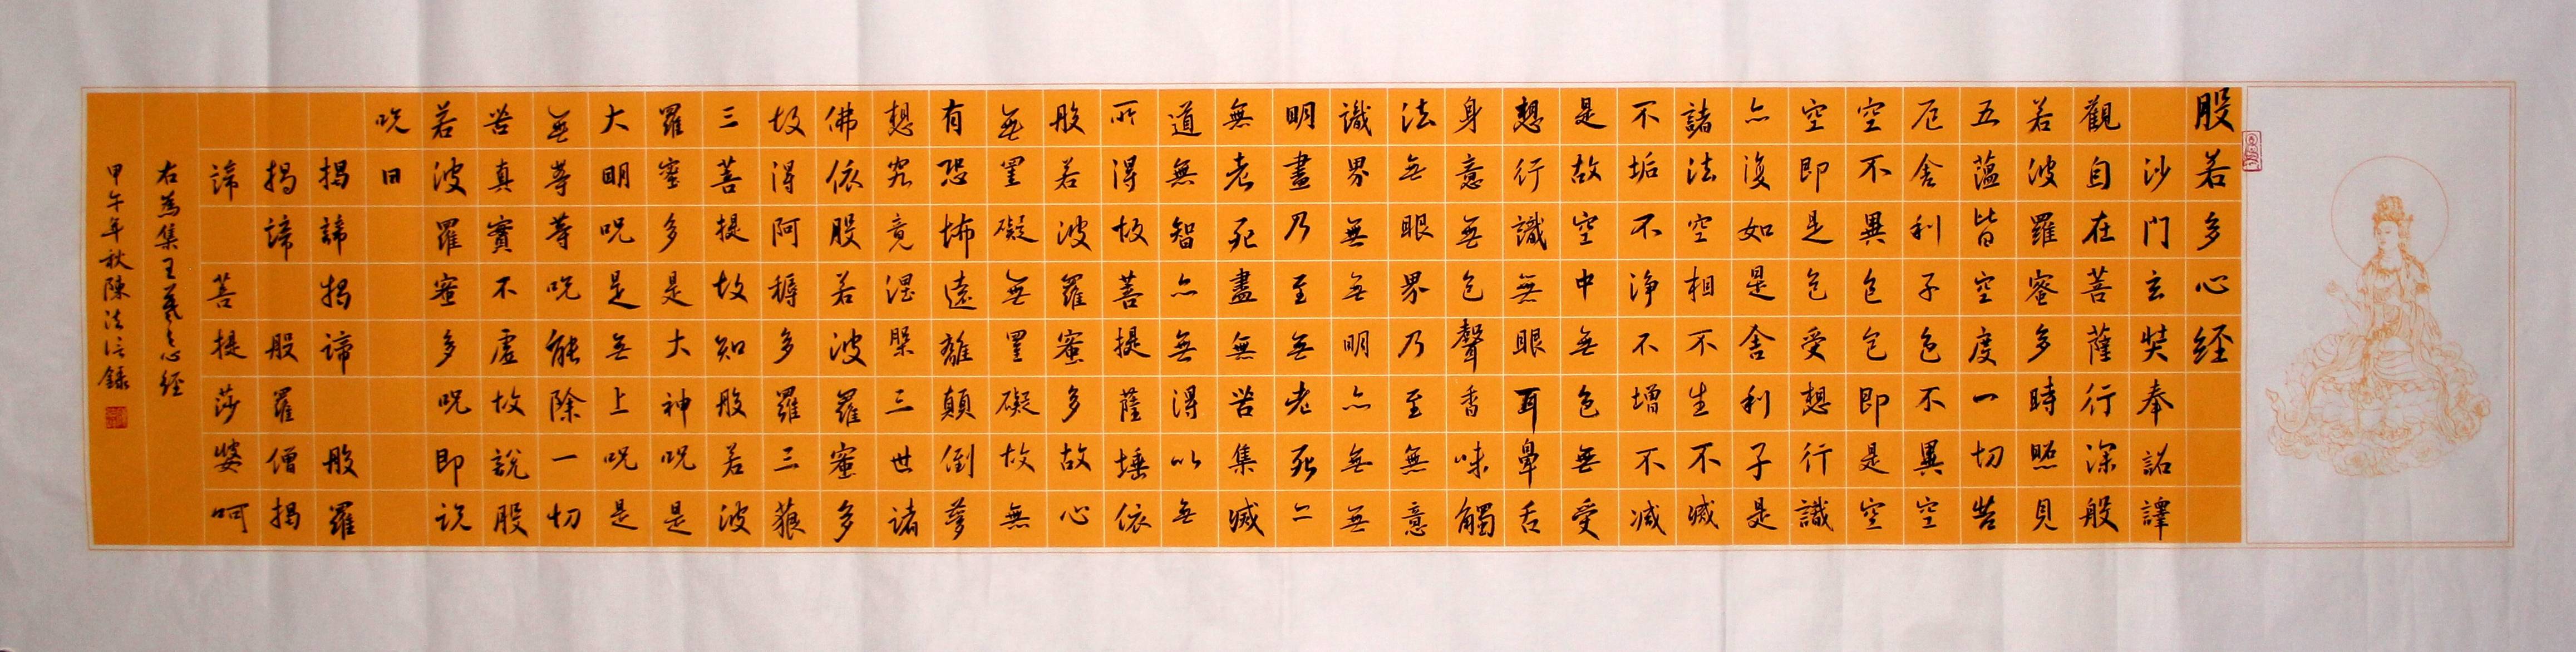 般若多心経
沙門玄奘奉詔譯
觀自在菩薩行深般
若波羅蜜多時照見
五蘊皆空度一切苦
厄舍利子色不異空
空不異色色即是空
空即是色受想行識
亦復如是舍利子是
諸法空相不生不滅
不垢不淨不增不減
是故空中無色無受
想行識無眼耳鼻舌
身意無色聲香味觸
法無眼界乃至無意
識界無無明亦無無
明盡乃至無老死亦
無老死盡無苦集滅
道無智亦無得以無
所得故菩提薩埵依
般若波羅蜜多故心
無罣礙無罣礙故無
有恐怖遠離顛倒夢
想究竟涅槃三世諸
佛依般若波羅蜜多
故得阿耨多羅三藐
三菩提故知般若波
羅蜜多是大神呪是
大明呪是無上呪是
無等等呪能除一切
苦真實不虛故說般
若波羅蜜多呪即説
呪曰
揭諦揭諦 般羅
揭諦 般羅僧揭
諦 菩提莎婆呵
右為集王羲之心経
甲午年秋陳法信錄